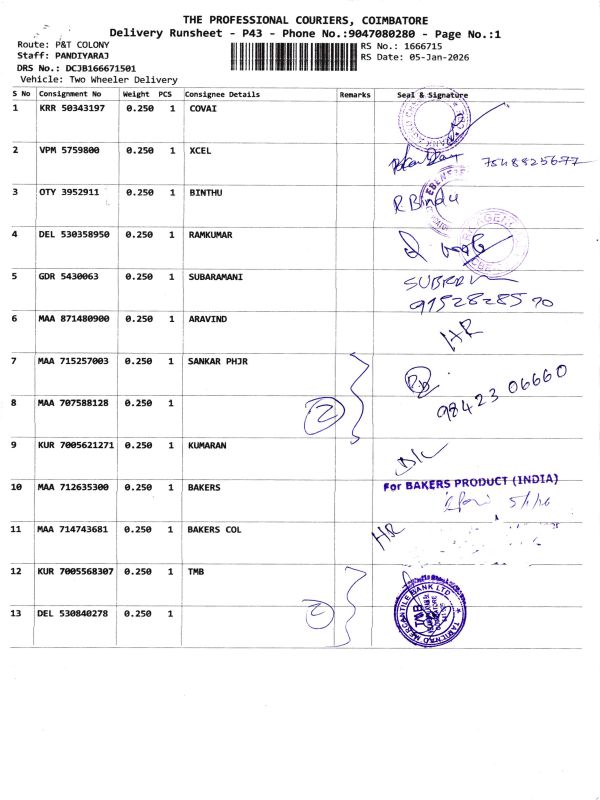 THE PROFESSIONAL COURIERS, COIMBATORE
Delivery Runsheet - P43 - Phone No.:9047080280 - Page No.:1
Route: P&T COLONY
RS No.: 1666715
Staff: PANDIYARAJ
RS Date: 05-Jan-2026
DRS No.: DCJB166671501
Vehicle: Two Wheeler Delivery
S No Consignment No Weight PCS Consignee Details Remarks Seal & Signature
1 KRR 50343197 0.250 1 COVAI
2 VPM 5759800 0.250 1 XCEL 7548925677
3 OTY 3952911 0.250 1 BINTHU R Bindu
4 DEL 530358950 0.250 1 RAMKUMAR
5 GDR 5430063 0.250 1 SUBARAMANI
6 MAA 871480900 0.250 1 ARAVIND HR
7 MAA 715257003 0.250 1 SANKAR PHJR
98423 06660
8 MAA 707588128 0.250 1 2
9 KUR 7005621271 0.250 1 KUMARAN
10 MAA 712635300 0.250 1 BAKERS For BAKERS PRODUCT (INDIA)
5/1/26
11 MAA 714743681 0.250 1 BAKERS COL HR
12 KUR 7005568307 0.250 1 TMB
13 DEL 530840278 0.250 1
TAMILNAD MERCANTILE BANK LTD
TMB